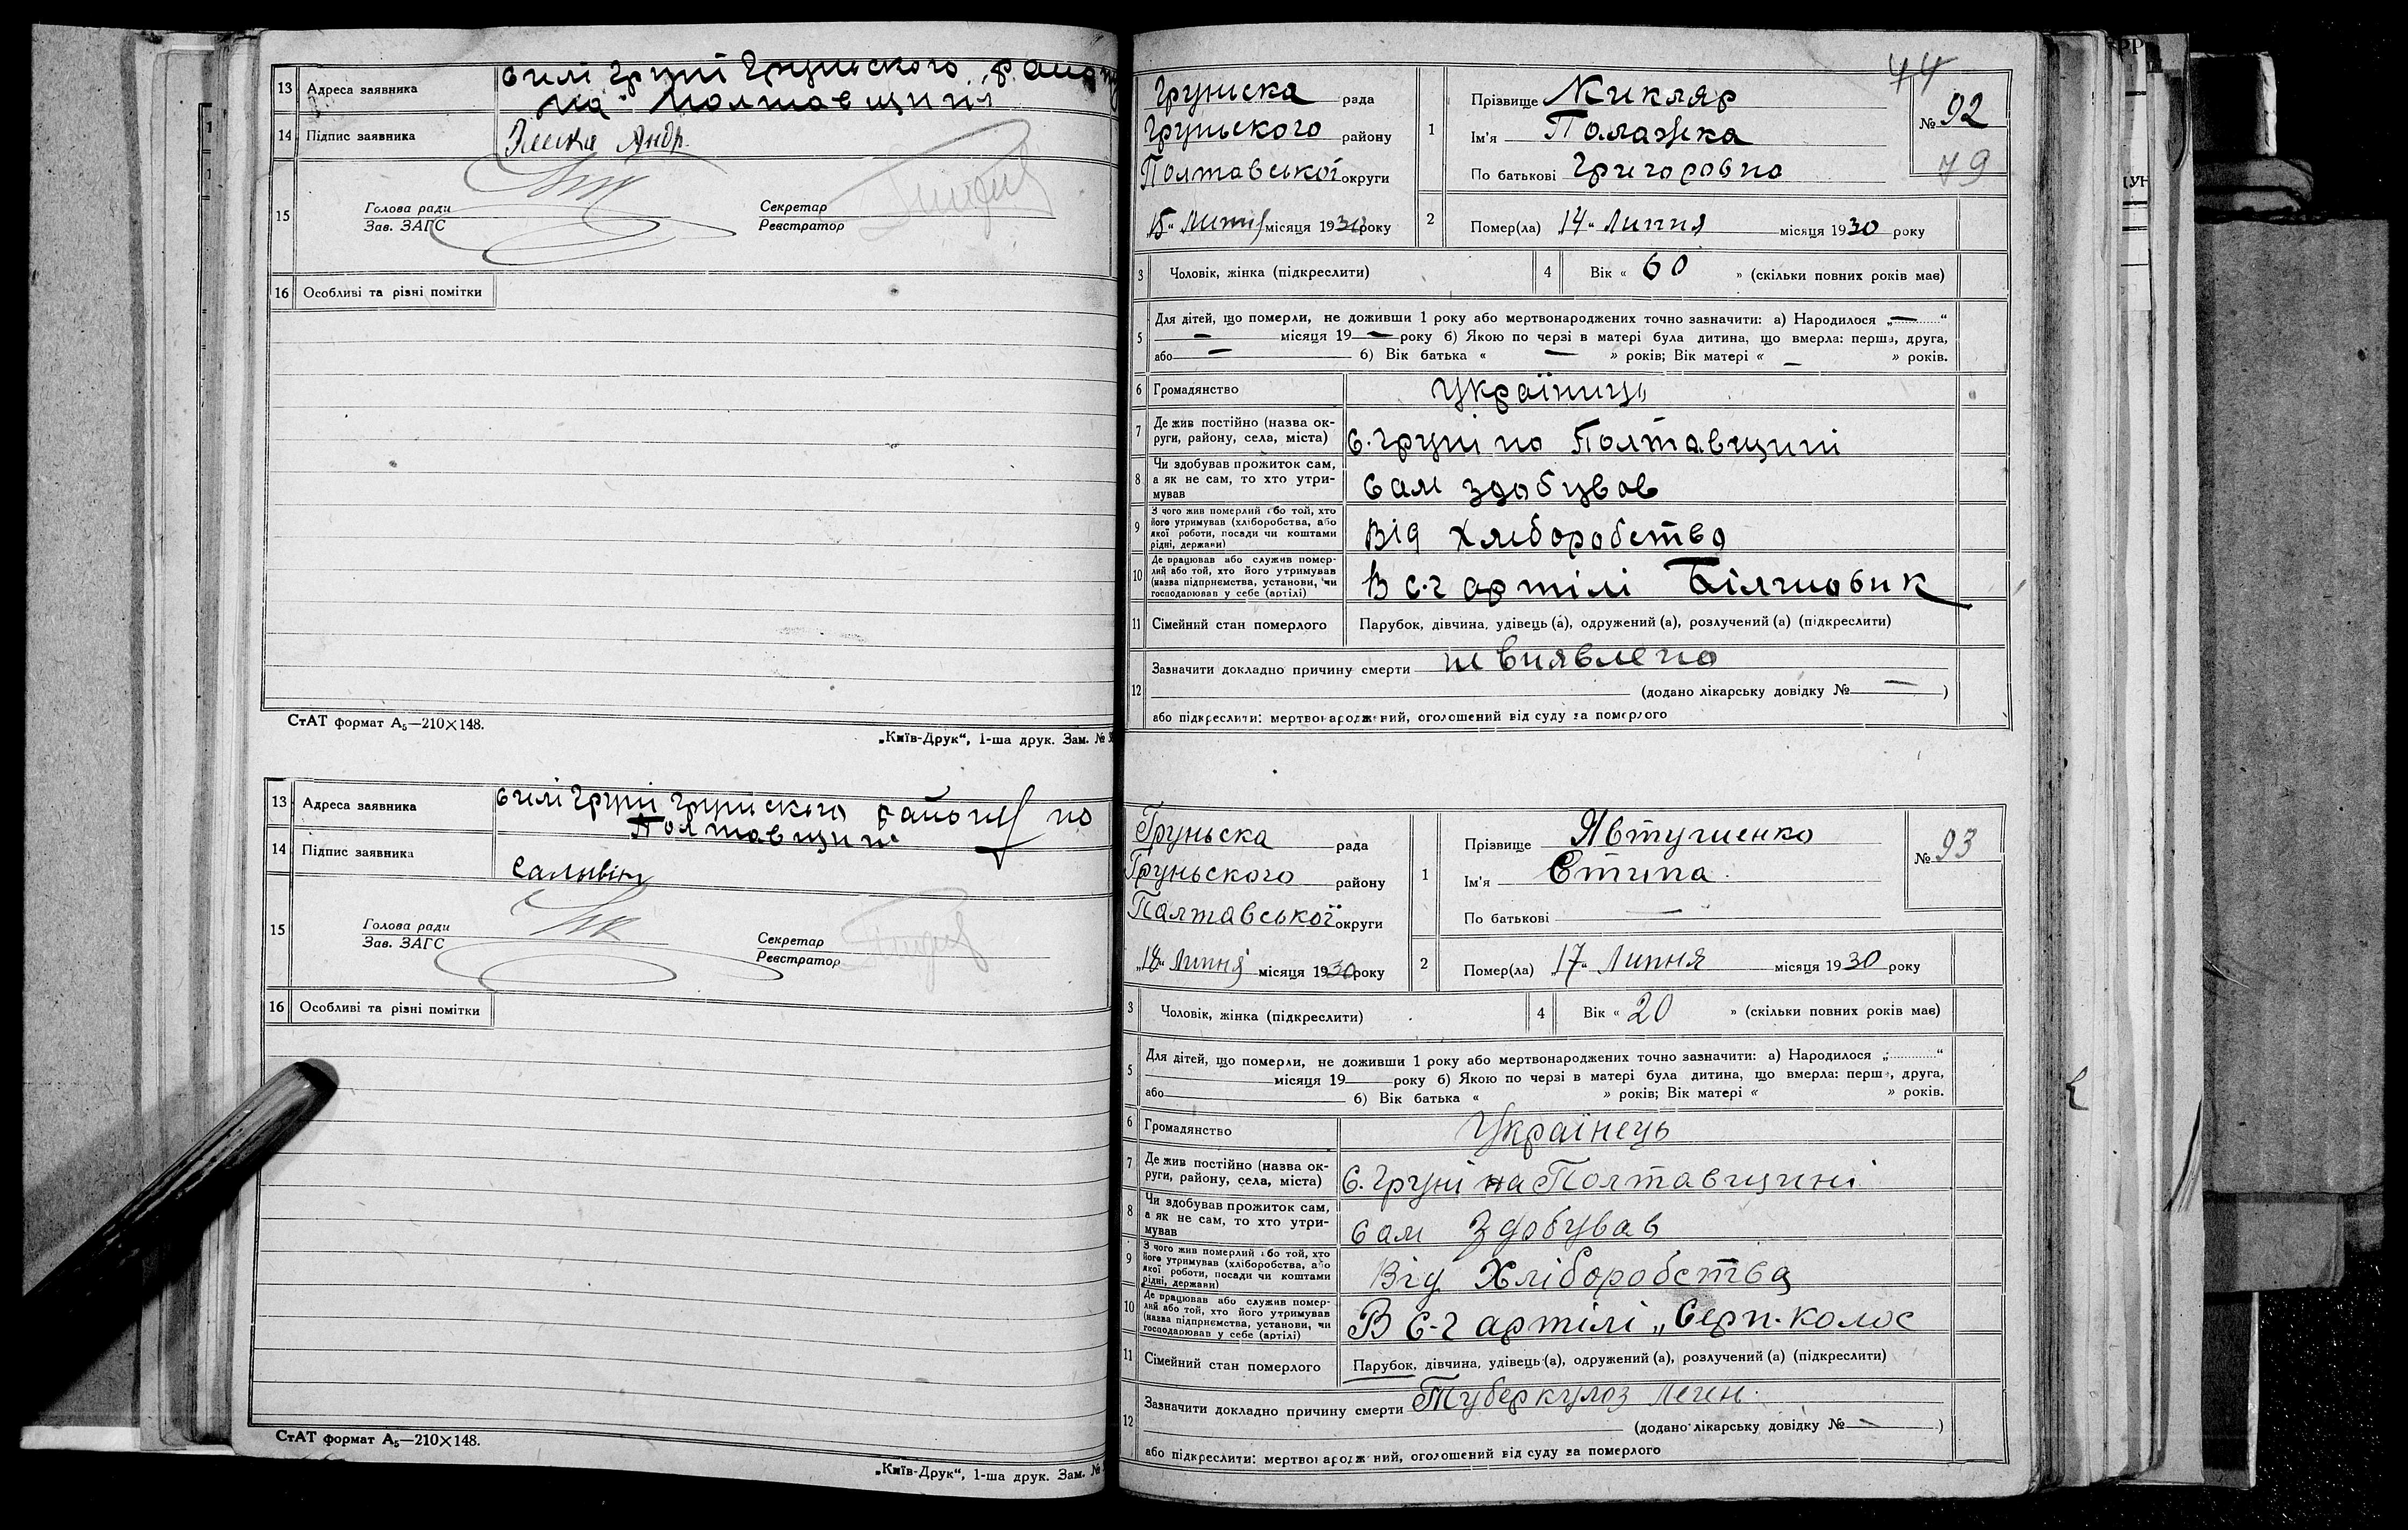 13 Адреса заявника с илі Груні Грунського району
на Полтавщині
14 Підпис заявника
15 Голова ради
Зав. ЗАГС
Секретар
Реєстратор
16 Особливі та різні помітки
СтАТ формат А₅—210×148.
„Київ-Друк“, 1-ша друк. Зам. №
13 Адреса заявника с илі Груні Грунського району на
Полтавщині
14 Підпис заявника
15 Голова ради
Зав. ЗАГС
Секретар
Реєстратор
16 Особливі та різні помітки
СтАТ формат А₅—210×148.
„Київ-Друк“, 1-ша друк. Зам. №
44
Груньска рада
Груньского району
Полтавської округи
15 Липня місяця 1930 року
1 Прізвище Кикляр
Ім'я Палажка
По батькові Григоровна
№ 92
79
2 Помер(ла) 14 Липня місяця 1930 року
3 Чоловік, жінка (підкреслити)
4 Вік « 60 » (скільки повних років має)
5 Для дітей, що померли, не доживши 1 року або мертвонароджених точно зазначити: а) Народилося „—“
— місяця 19 — року б) Якою по черзі в матері була дитина, що вмерла: перша, друга,
або — б) Вік батька « — » років; Вік матері « — » років.
6 Громадянство Україниць
7 Де жив постійно (назва ок-
руги, району, села, міста) С. Груні на Полтавщині
8 Чи здобував прожиток сам,
а як не сам, то хто утри-
мував Сам здобував
9 З чого жив померлий або той, хто
його утримував (хліборобства, або
якої роботи, посади чи коштами
рідні, держави) Від Хліборобства
10 Де працював або служив помер-
лий або той, хто його утримував
(назва підприємства, установи, чи
господарював у себе (артілі) В с-г артілі Білшовик
11 Сімейний стан померлого Парубок, дівчина, удівець (а), одружений (а), розлучений (а) (підкреслити)
12 Зазначити докладно причину смерти не виявлено
(додано лікарську довідку № — )
або підкреслити: мертвонароджений, оголошений від суду за померлого
Груньска рада
Груньского району
Палтавської округи
„18“ Липня місяця 1930 року
1 Прізвище Явтушенко
Ім'я
По батькові —
№ 93
2 Помер(ла) „17“ Липня місяця 1930 року
3 Чоловік, жінка (підкреслити)
4 Вік « 20 » (скільки повних років має)
5 Для дітей, що померли, не доживши 1 року або мертвонароджених точно зазначити: а) Народилося „ “
місяця 19 року б) Якою по черзі в матері була дитина, що вмерла: перша, друга,
або б) Вік батька « » років; Вік матері « » років.
6 Громадянство Українець
7 Де жив постійно (назва ок-
руги, району, села, міста) С. Груні на Полтавщині
8 Чи здобував прожиток сам,
а як не сам, то хто утри-
мував Сам Здобував
9 З чого жив померлий або той, хто
його утримував (хліборобства, або
якої роботи, посади чи коштами
рідні, держави) Від Хліборобства
10 Де працював або служив помер-
лий або той, хто його утримував
(назва підприємства, установи, чи
господарював у себе (артілі) В С-г артілі „Серп. колос
11 Сімейний стан померлого Парубок, дівчина, удівець (а), одружений (а), розлучений (а) (підкреслити)
12 Зазначити докладно причину смерти Туберкульоз леген.
(додано лікарську довідку № — )
або підкреслити: мертвонароджений, оголошений від суду за померлого